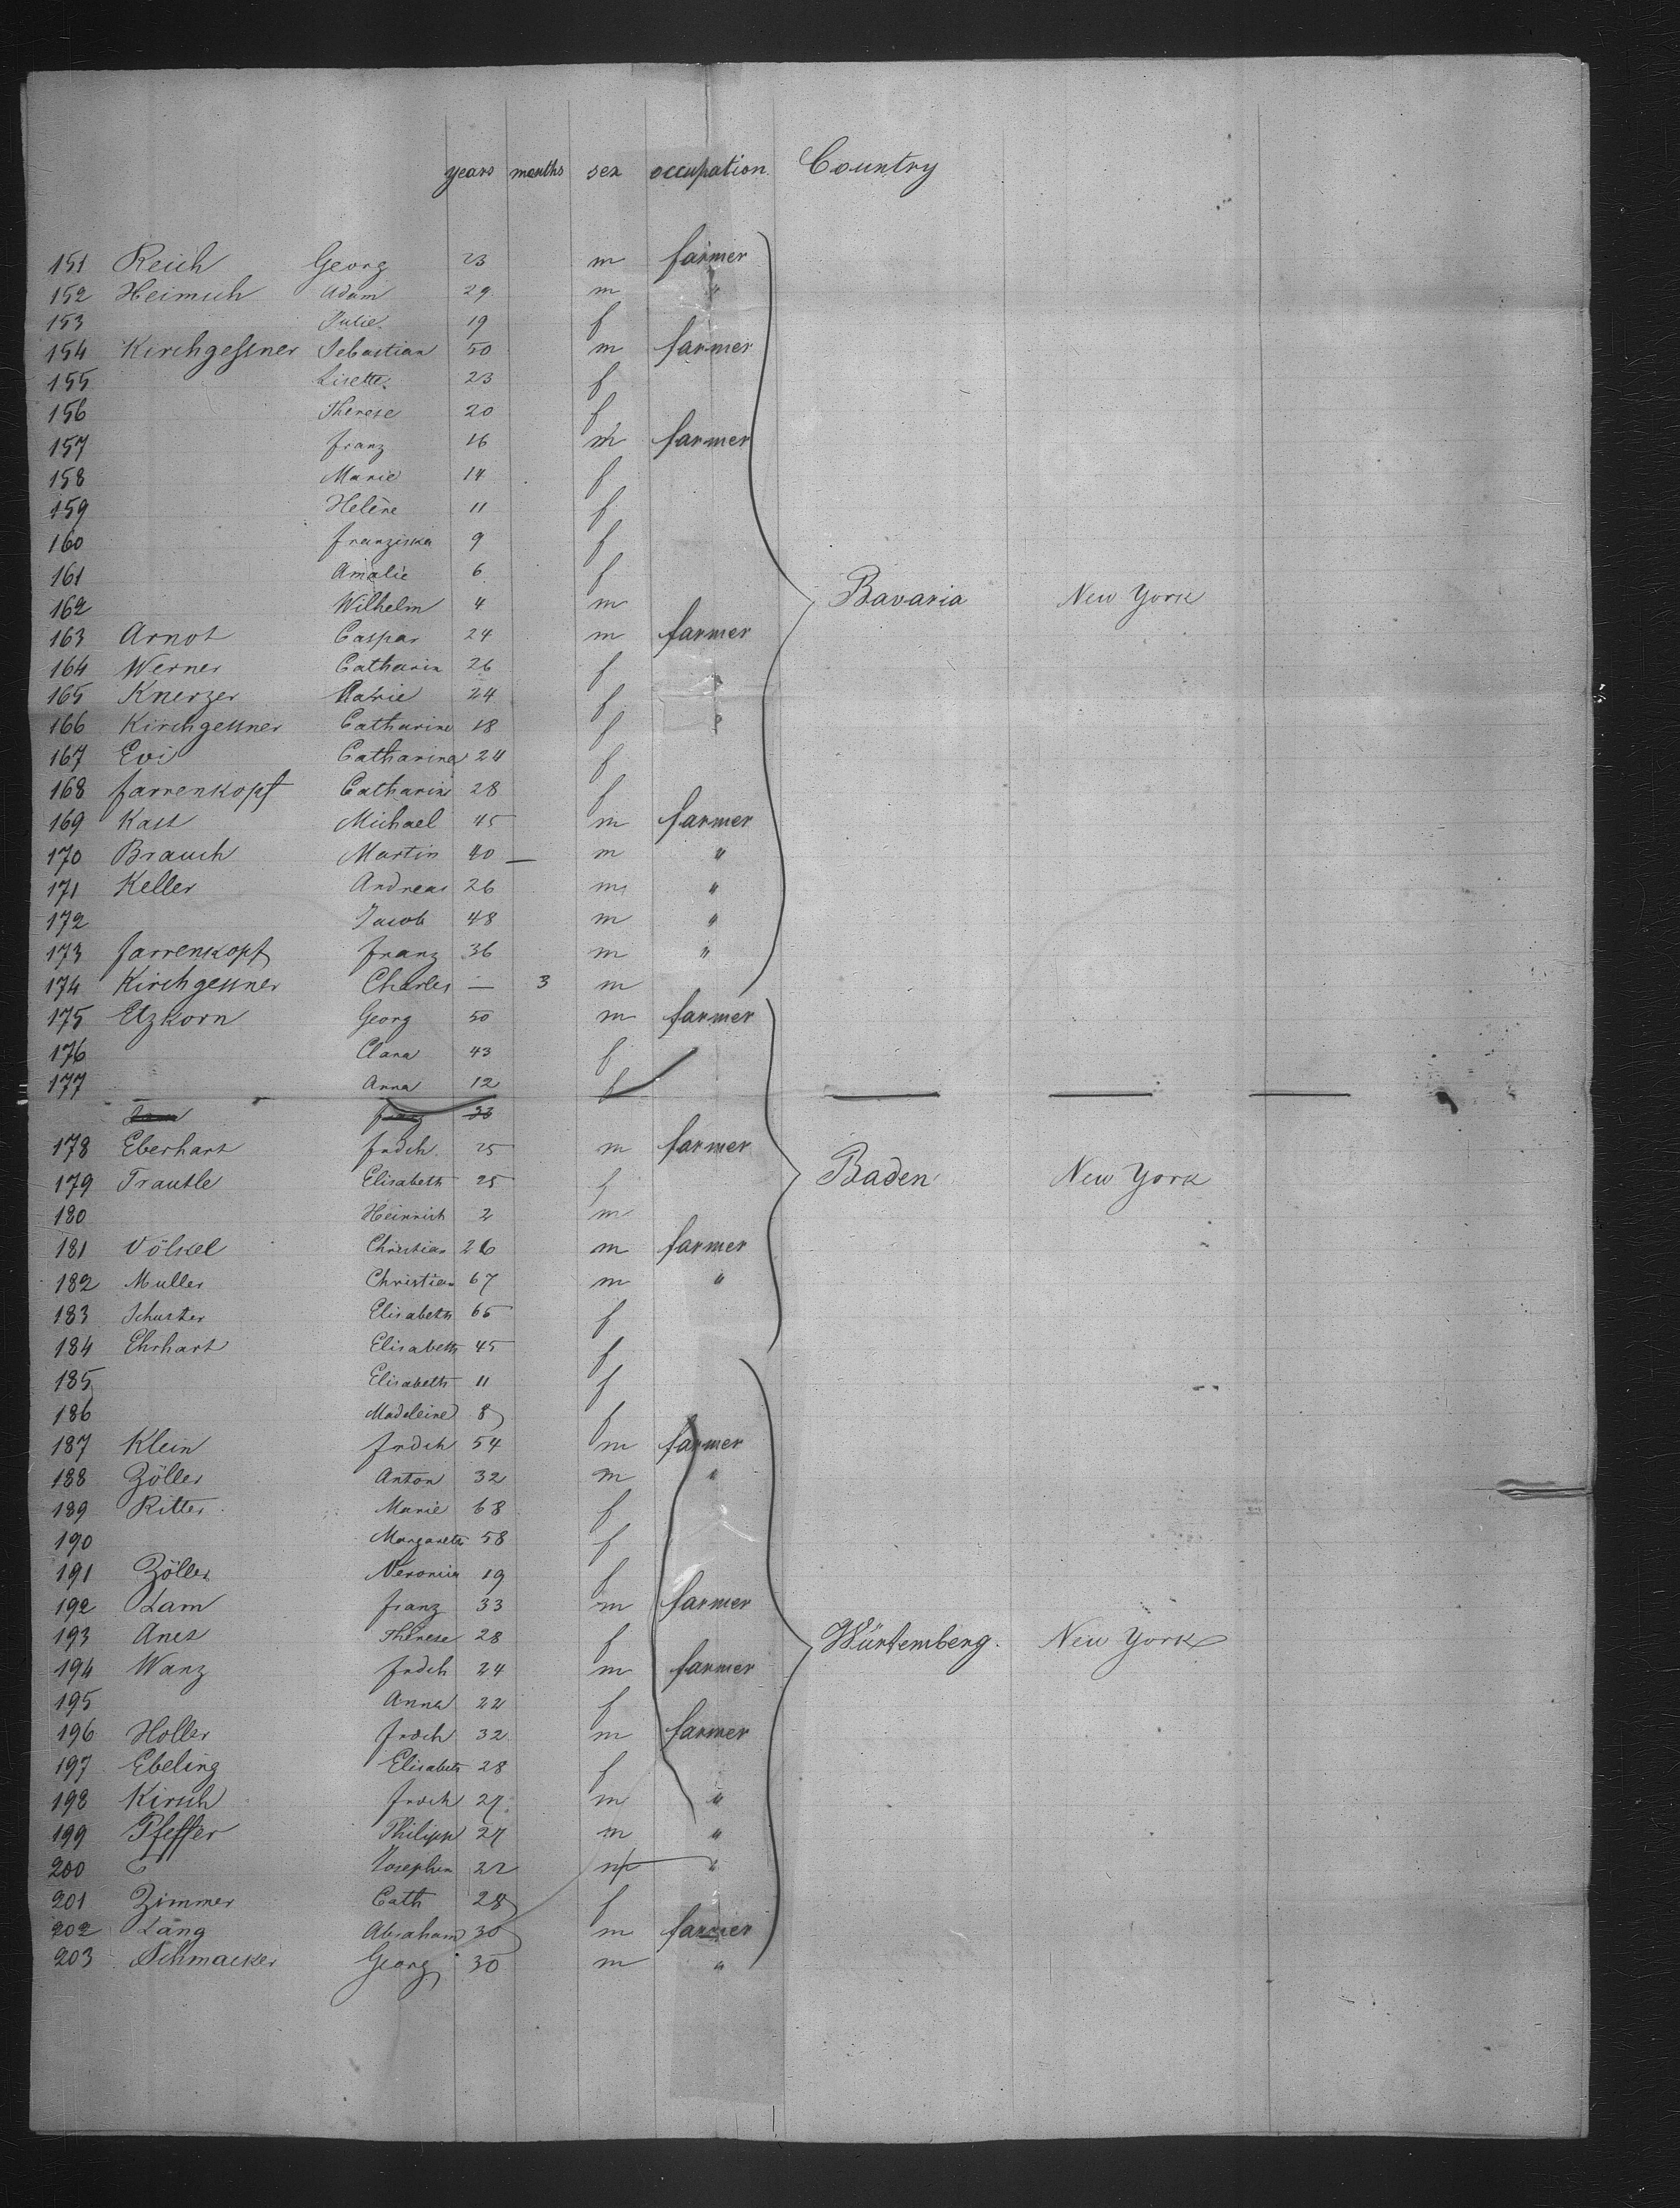 years months sex occupation Country
151 Reich Georg 23 m farmer
152 Heimich Adam 29 m "
153 Julie 19 f
154 Kirchgeſsner Sebastian 50 m farmer
155 Lisette 23 f
156 Therese 20 f
157 franz 16 m farmer
158 Marie 14 f
159 Helene 11 f
160 franziska 9 f
161 Amalie 6 f
162 Wilhelm 4 m Bavaria New York
163 Arnot Caspar 24 m farmer
164 Werner Catharin 26 f "
165 Knerzer Marie 24 f
166 Kirchgessner Catharine 18 f
167 Evi Catharina 24 f
168 farrenkopf Catharin 28 f
169 Kast Michael 45 m farmer
170 Brauch Martin 40 — m "
171 Keller Andreas 26 m "
172 Jacob 48 m "
173 farrenkopf franz 36 m "
174 Kirchgessner Charles — 3 m
175 Etzkorn Georg 50 m farmer
176 Clara 43 f
177 Anna 12 f
franz 33
178 Eberhart frdch. 25 m farmer
179 Trautle Elisabeth 25 f Baden New York
180 Heinrich 2 m
181 Völkel Christian 26 m farmer
182 Muller Christian 67 m "
183 Schuster Elisabeth 65 f
184 Ehrhart Elisabeth 45 f
185 Elisabeth 11 f
186 Madeleine 8 f
187 Klein frdch 54 m farmer
188 Zöller Anton 32 m "
189 Ritter Marie 68 f
190 Margareta 58 f
191 Zöller Veronica 19 f
192 Lam franz 33 m farmer
193 Anes Therese 28 f Würtemberg. New York
194 Wanz frdch 24 m farmer
195 Anna 22 f
196 Holler frdch 32 m farmer
197 Ebeling Elisabeth 28 f
198 Kirsch frdch 27 m "
199 Pfeffer Philipp 27 m "
200 Josephin 22 "
201 Zimmer Cath 28 f
202 Läng Abraham 30 m farmer
203 Schmacker Georg 30 m "